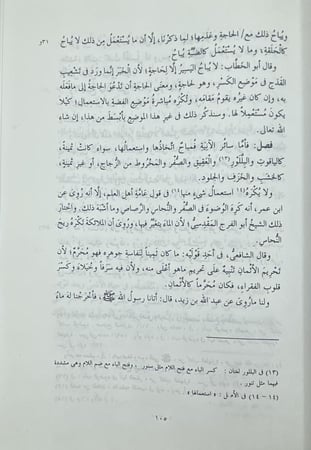 ويُباحُ ذلك مع/ الحاجةِ وعَدَمِها؛ لما ذكرْنا، إلَّا أن ما يُسْتَعْمَلُ مِن ذلك لا يُباحُ ٣١و
كالحَلْقةِ، وما لا يُسْتَعْمَلُ كالضَّبَّةِ يُباحُ.
وقال أبو الخطَّاب: لا يُباحُ اليَسِيرُ إلَّا لحاجةٍ؛ لأن الخَبَرَ إنَّما ورَد في تَشْعِيبِ
القَدَحِ في مَوْضِعِ الكَسْرِ، وهو لحاجةٍ، ومعنى الحاجةِ أن تَدْعُوَ الحاجةُ إلى ما فعَلَه
به، وإن كان غيرُه يقومُ مَقامَه، وتُكْرَهُ مُباشَرةُ مَوْضِعِ الفضةِ بالاستعمالِ؛ كَيْلا
يكونَ مُسْتَعْمِلًا لها. وسنذكر ذلك في غير هذا الموضع بأَبْسَطَ من هذا، إن شاء
الله تعالى.
فصل: فأمَّا سائرُ الآنِيةِ فمُباحٌ اتِّخاذُها واستعمالُها، سواء كانت ثَمِينةً،
كالياقوتِ والبِلَّوْرِ(١٣) والعَقِيقِ والصُّفْرِ والمَخْروطِ من الزُّجاجِ، أو غيرَ ثَمِينةٍ،
كالخَشَبِ والخَزَفِ والجلودِ.
ولا يُكْرَهُ(١٤) استعمالُ شيءٍ منها(١٤) في قولِ عامَّةِ أهلِ العلمِ، إلَّا أنه رُوِىَ عن
ابن عمر، أنه كَرِهَ الوُضوءَ في الصُّفْرِ والنُّحاسِ والرصاصِ وما أشْبَهَ ذلك. واختارَ
ذلك الشيخُ أبو الفرج المَقْدِسِىُّ؛ لأن الماءَ يتغيَّرُ فيها، ورُوِىَ أن الملائكةَ تَكْرَهُ رِيحَ
النُّحاس.
وقال الشافعىُّ، في أحَدِ قَوْلَيْه: ما كان ثَمِينًا لِنَفاسةِ جَوهرِه فهو مُحَرَّمٌ؛ لأن
تَحْرِيمَ الأَثْمانِ تَنْبِيهٌ على تحريمِ ما هو أعْلَى منه، ولأن فيه سَرَفًا وخُيَلاءَ وكَسْرَ
قلوبِ الفقراءِ، فكان مُحَرَّمًا كالأثْمانِ.
ولنا ما رُوِىَ عن عبد اللّه بن زيد، قال: أتانا رسولُ اللّه ﷺ، فأخْرَجْنا له ماءً
(١٣) في البللور لغتان: كسر الباء مع فتح اللام مثل سنور، وفتح الباء مع ضم اللام وهي مشددة
فيهما مثل تنور.
(١٤ - ١٤) في الأصل: « استعمالها ».
١٠٥